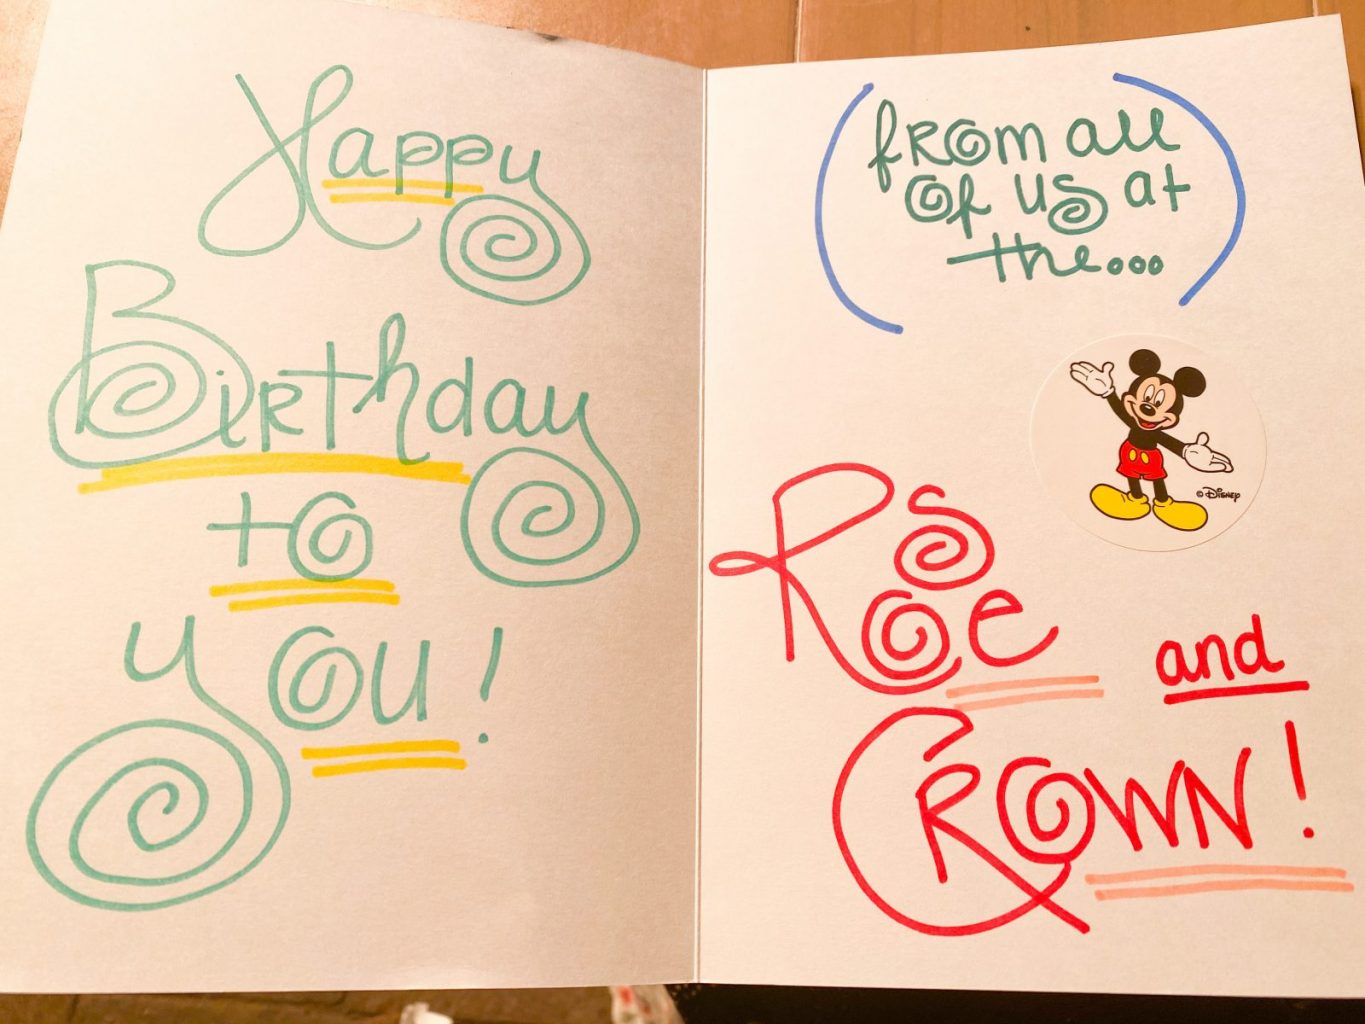 Happy
Birthday
to
you!
(from all
of us at
the...)
© Disney
Rose
and
Crown!